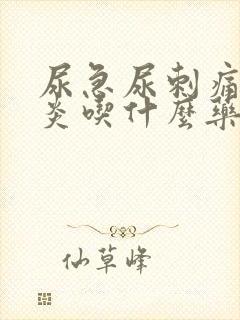 尿急尿刺痛
炎喫什麼藥
仙草峰